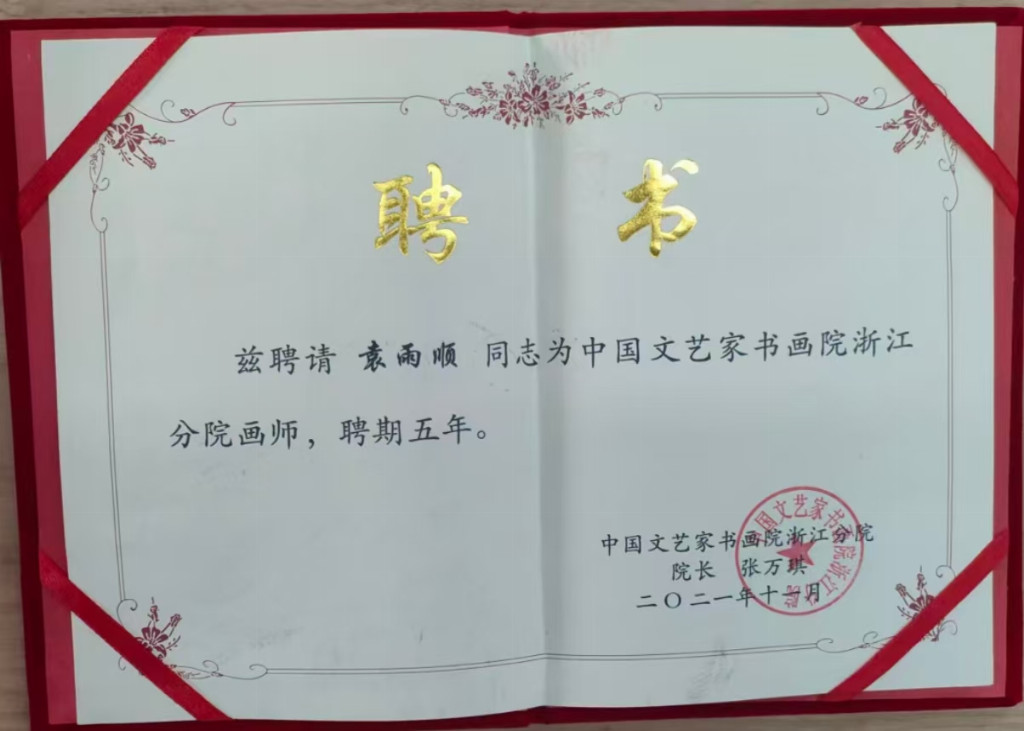 聘书
兹聘请 袁雨顺 同志为中国文艺家书画院浙江
分院画师，聘期五年。
中国文艺家书画院浙江分院
院长 张万琪
二〇二一年十一月
中国文艺家书画院浙江分院